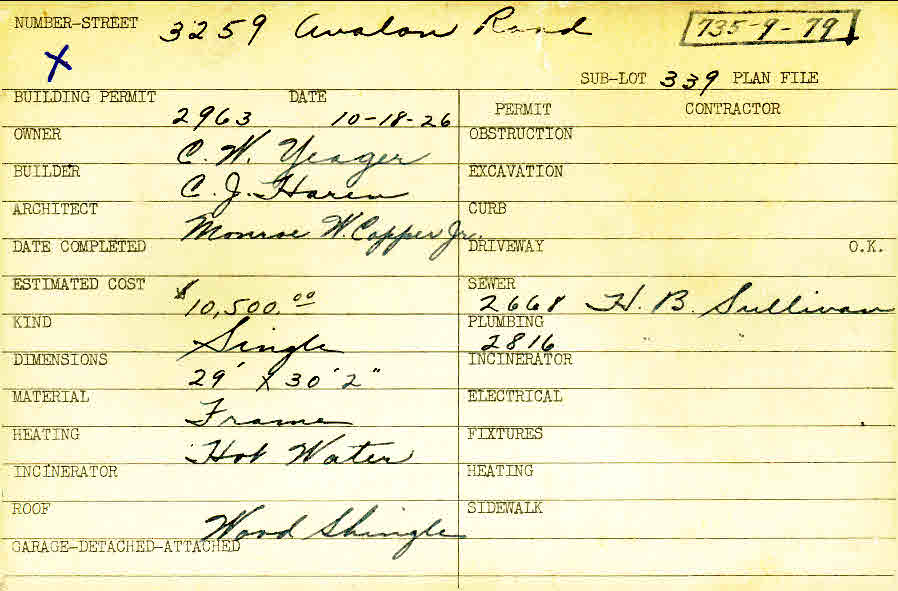 NUMBER-STREET 3259 Avalon Road 735-9-79
X
SUB-LOT 339 PLAN FILE
BUILDING PERMIT 2963 DATE 10-18-26
PERMIT CONTRACTOR
OWNER C. W. Yeager
OBSTRUCTION
BUILDER C. J. Haren
EXCAVATION
ARCHITECT Monroe W. Copper Jr.
CURB
DATE COMPLETED
DRIVEWAY O.K.
ESTIMATED COST $10,500.00
SEWER 2668 H. B. Sullivan
KIND Single
PLUMBING 2816 " "
DIMENSIONS 29' x 30' 2"
INCINERATOR
MATERIAL Frame
ELECTRICAL
HEATING Hot Water
FIXTURES
INCINERATOR
HEATING
ROOF Wood Shingle
SIDEWALK
GARAGE-DETACHED-ATTACHED